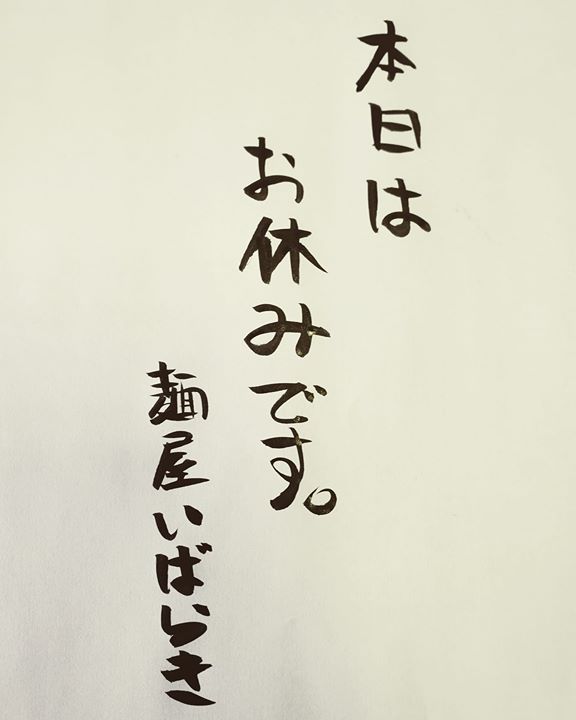 本日は
お休みです。
麺屋いばらき